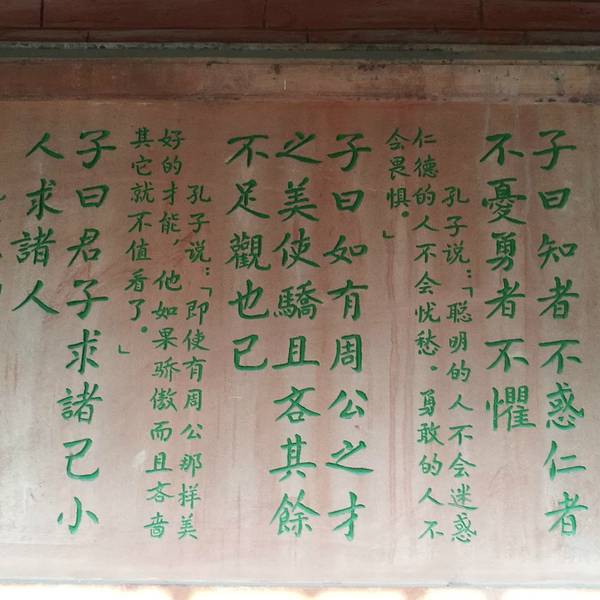 子曰知者不惑仁者
不憂勇者不懼
孔子说：「聪明的人不会迷惑
仁德的人不会忧愁。勇敢的人不
会畏惧。」
子曰如有周公之才
之美使驕且吝其餘
不足觀也已
孔子说：「即使有周公那样美
好的才能，他如果骄傲而且吝啬
其它就不值看了。」
子曰君子求諸己小
人求諸人